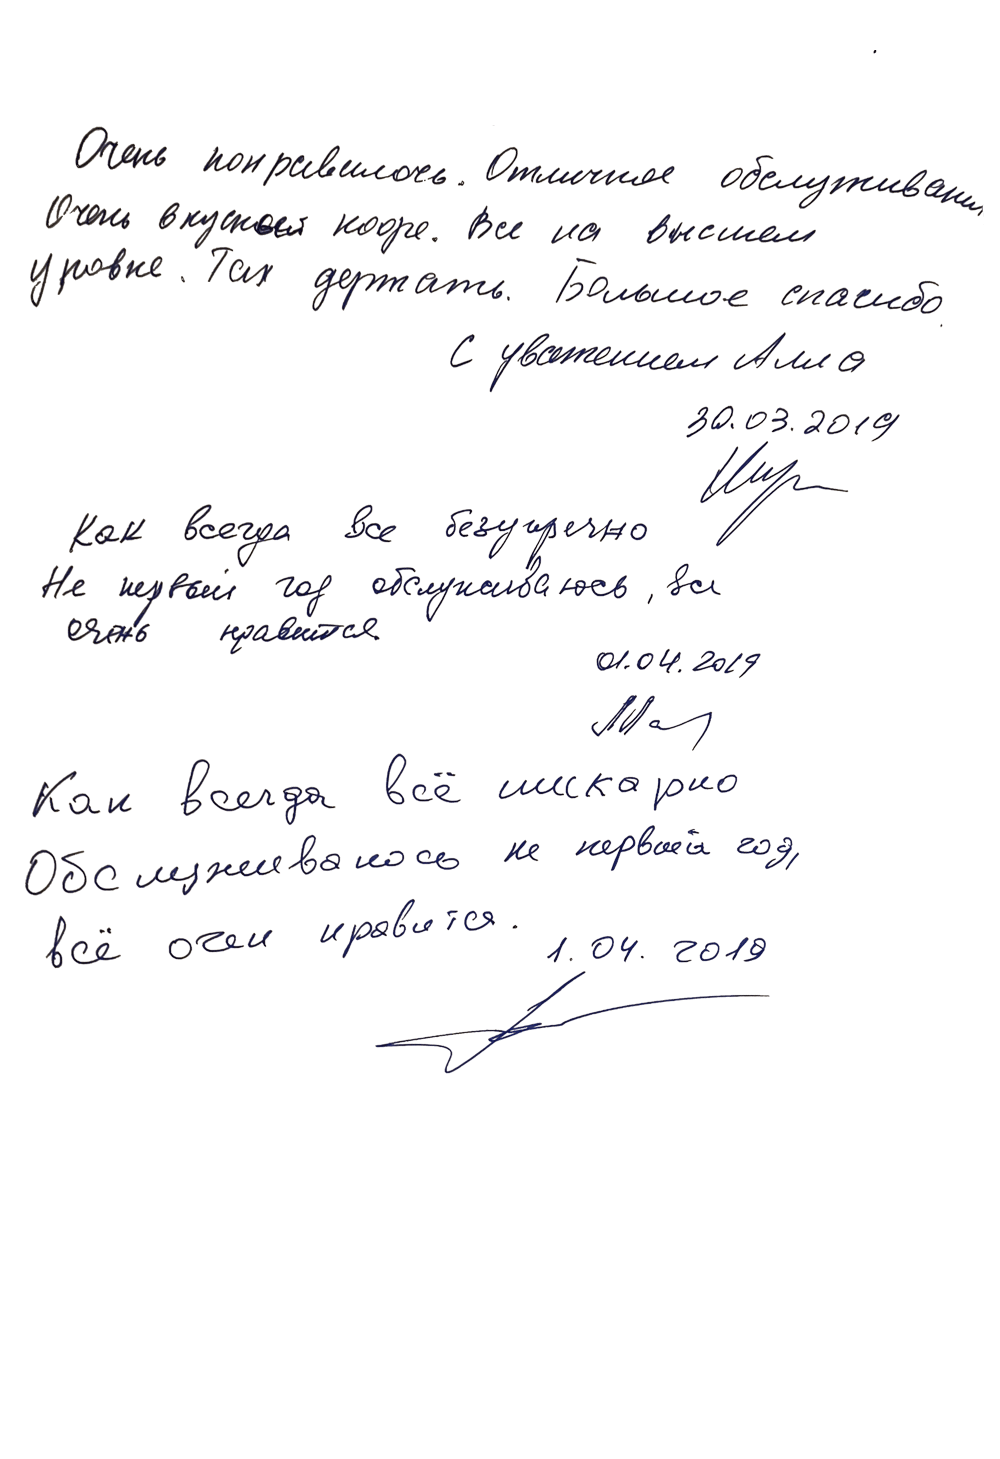 Очень понравилось. Отличное обслуживание
Очень вкусный кофе. Все на высшем
уровне. Так держать. Большое спасибо.
С уважением Алла
30.03.2019
Как всегда все безупречно
Не первый год обслуживаюсь, все
очень нравится.
01.04.2019
Как всегда всё шикарно
Обслуживалось не первый год,
всё очен нравится.
1.04.2019